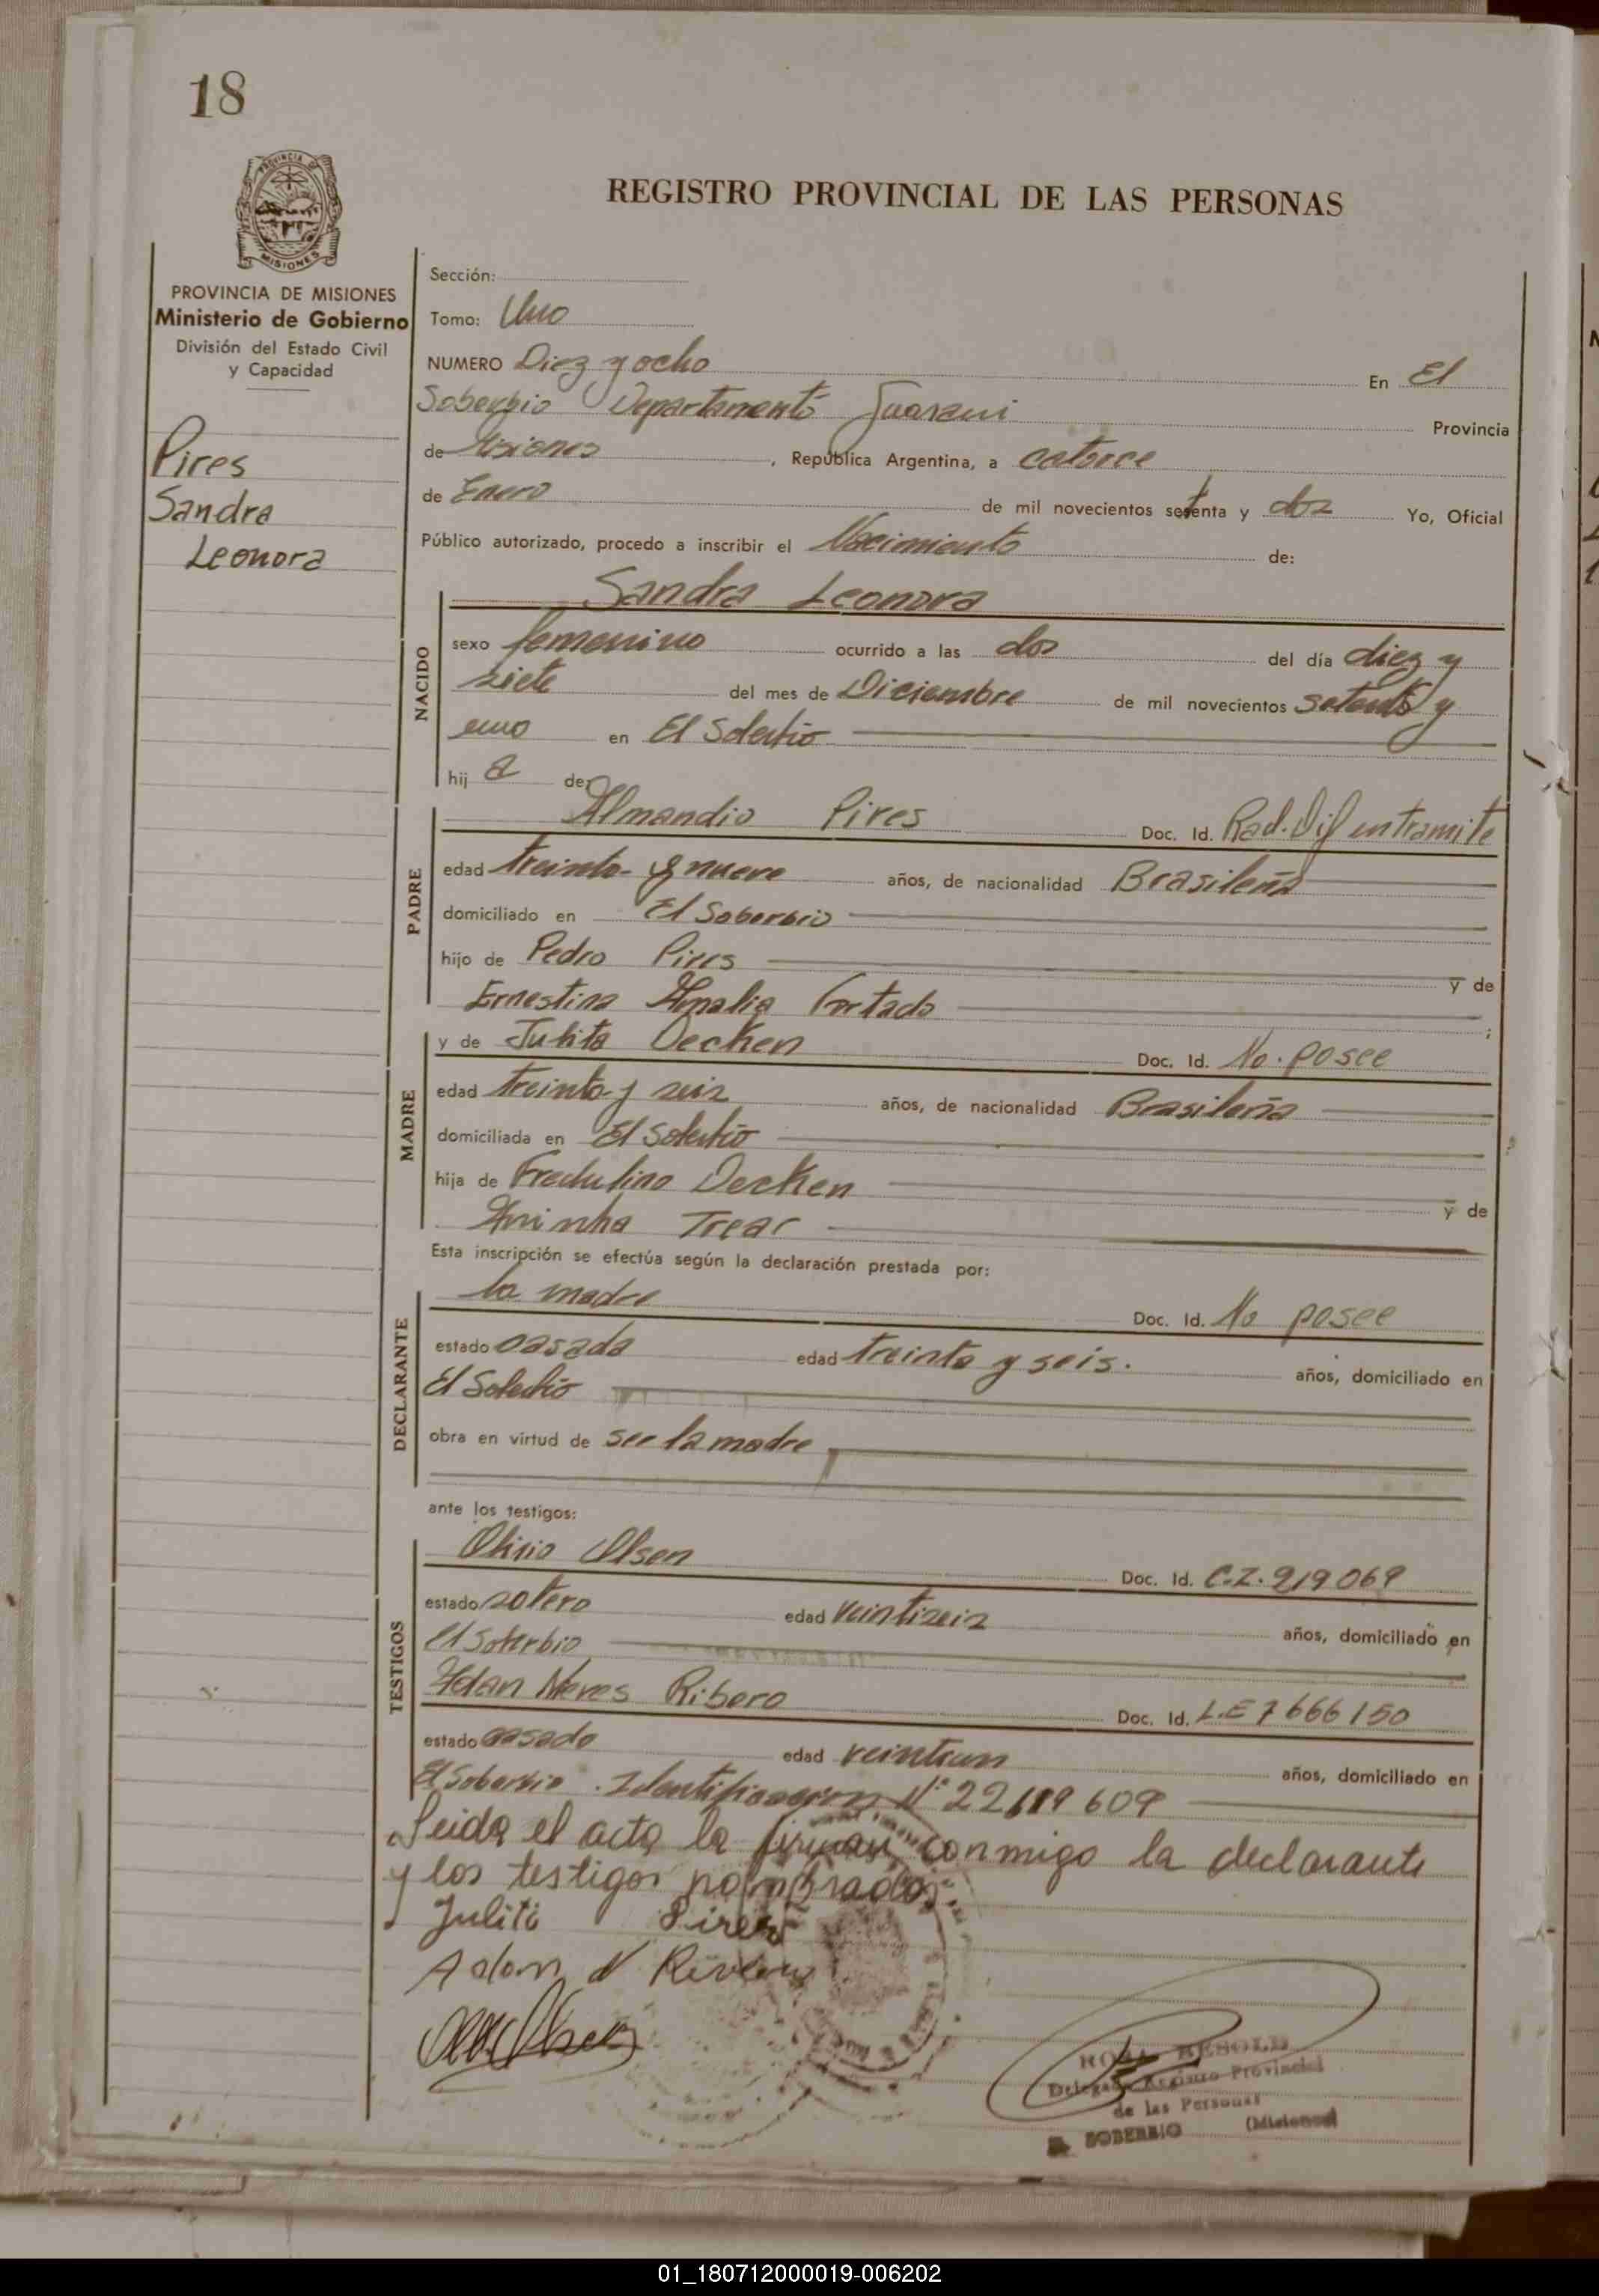 18
PROVINCIA DE
MISIONES
REGISTRO PROVINCIAL DE LAS PERSONAS
PROVINCIA DE MISIONES
Ministerio de Gobierno
División del Estado Civil
y Capacidad
Pires
Sandra
Leonora
Sección:
Tomo: Uno
NUMERO Diez y ocho En El
Soberbio Departamento Guarani Provincia
de Misiones, República Argentina, a catorce
de Enero de mil novecientos setenta y dos Yo, Oficial
Público autorizado, procedo a inscribir el Nacimiento de:
NACIDO
Sandra Leonora
sexo femenino ocurrido a las dos del día diez y
siete del mes de Diciembre de mil novecientos setenta y
uno en El Soberbio
hij a de:
PADRE
Almandio Pires Doc. Id. Rad. Dif en tramite
edad treinta y nueve años, de nacionalidad Brasileña
domiciliado en El Soberbio
hijo de Pedro Pires y de
Ernestina Amalia Fortado ;
MADRE
y de Julita Decken Doc. Id. No posee
edad treinta y seis años, de nacionalidad Brasileña
domiciliada en El Soberbio
hija de Fredulino Decken y de
Aninha Trear
Esta inscripción se efectúa según la declaración prestada por:
DECLARANTE
la madre Doc. Id. No posee
estado casada edad treinta y seis. años, domiciliado en
El Soberbio
obra en virtud de ser la madre
ante los testigos:
TESTIGOS
Olisio Olsen Doc. Id. C.I. 919069
estado soltero edad veintiseis años, domiciliado en
El Soberbio
Adan Neves Ribero Doc. Id. L.E 7666150
estado casado edad veintiun años, domiciliado en
El Soberbio. Identificacion N° 22619609
Leida el acta la firman conmigo la declarante
y los testigos nombrados.
Julita Pires
Adan N Rivero
BESOLD
Delegado Registro Provincial
de las Personas
EL SOBERBIO (Misiones)
01_180712000019-006202